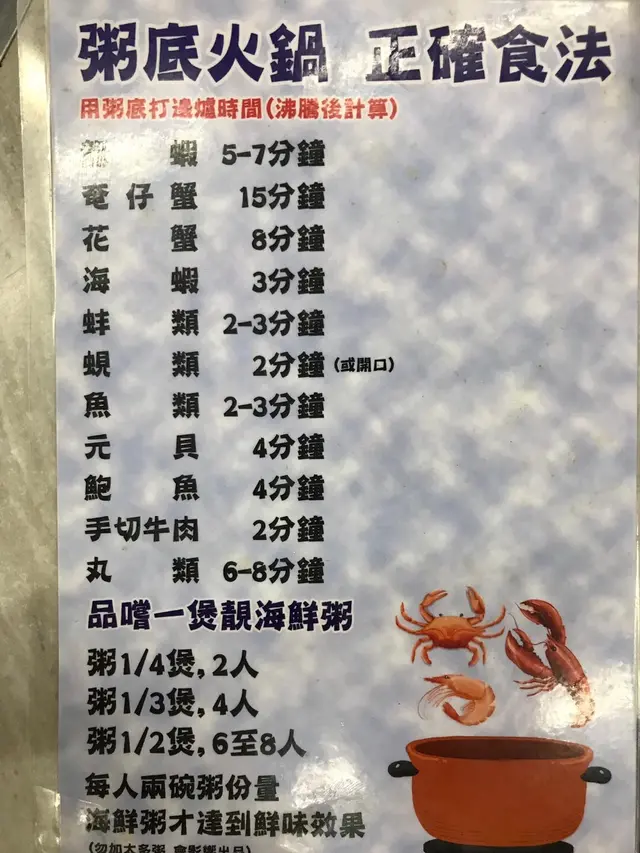 粥底火鍋 正確食法
用粥底打邊爐時間(沸騰後計算)
蝦 5-7分鐘
奄仔蟹 15分鐘
花蟹 8分鐘
海蝦 3分鐘
蚌類 2-3分鐘
蜆類 2分鐘(或開口)
魚類 2-3分鐘
元貝 4分鐘
鮑魚 4分鐘
手切牛肉 2分鐘
丸類 6-8分鐘
品嚐一煲靚海鮮粥
粥1/4煲,2人
粥1/3煲,4人
粥1/2煲,6至8人
每人兩碗粥份量
海鮮粥才達到鮮味效果
(勿加太多粥,會影響出品)